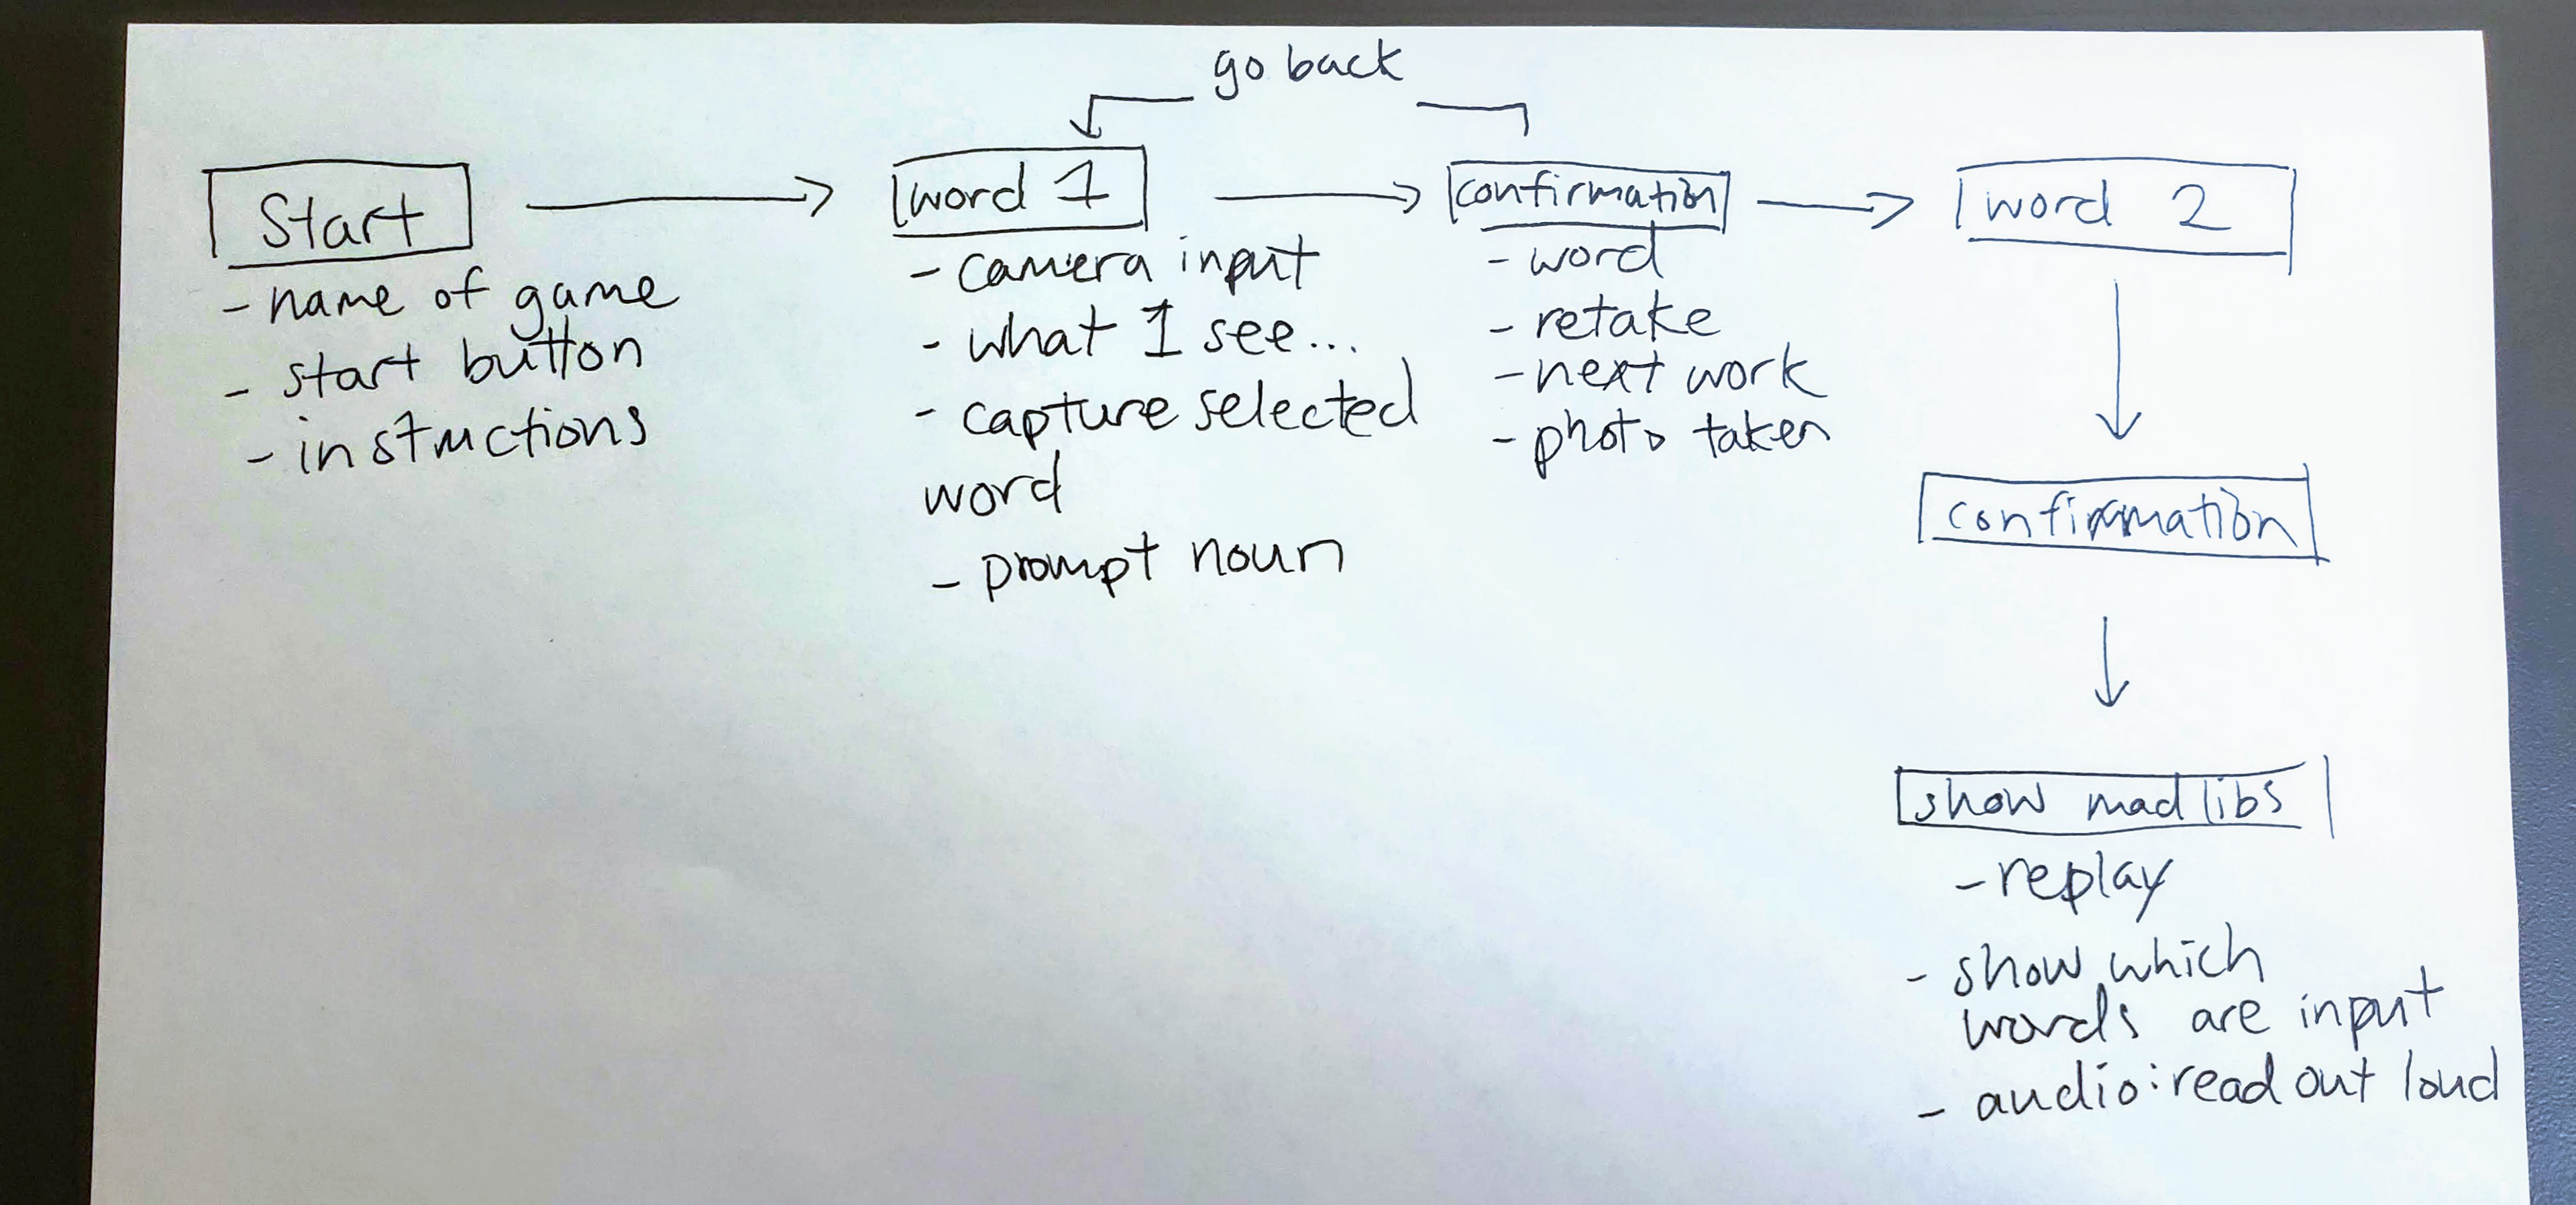 go back
Start
- name of game
- start button
- instructions
word 1
- camera input
- what I see...
- capture selected
word
- prompt noun
confirmation
- word
- retake
- next work
- photo taken
word 2
confirmation
show mad libs
- replay
- show which
words are input
- audio: read out loud